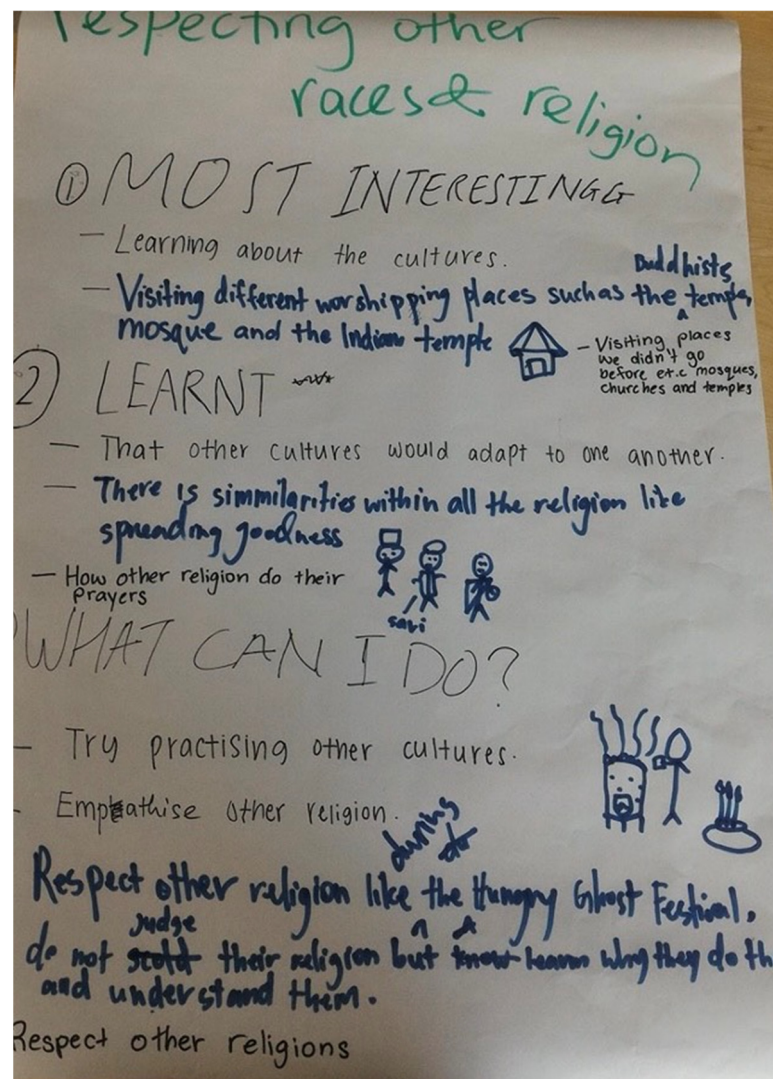 respecting other
races & religion
① MOST INTERESTINGG
- Learning about the cultures.
- Visiting different worshipping places such as the Buddhists temple,
mosque and the Indian temple
- Visiting places
we didn't go
before et.c mosques,
churches and temples
② LEARNT
- That other cultures would adapt to one another.
- There is simmilarities within all the religion like
spreading goodness
- How other religion do their
prayers
sari
WHAT CAN I DO?
- Try practising other cultures.
- Empathise other religion.
Respect other religion like during the Hungry Ghost Festival,
do not judge their religion but learn why they do th
and understand them.
Respect other religions